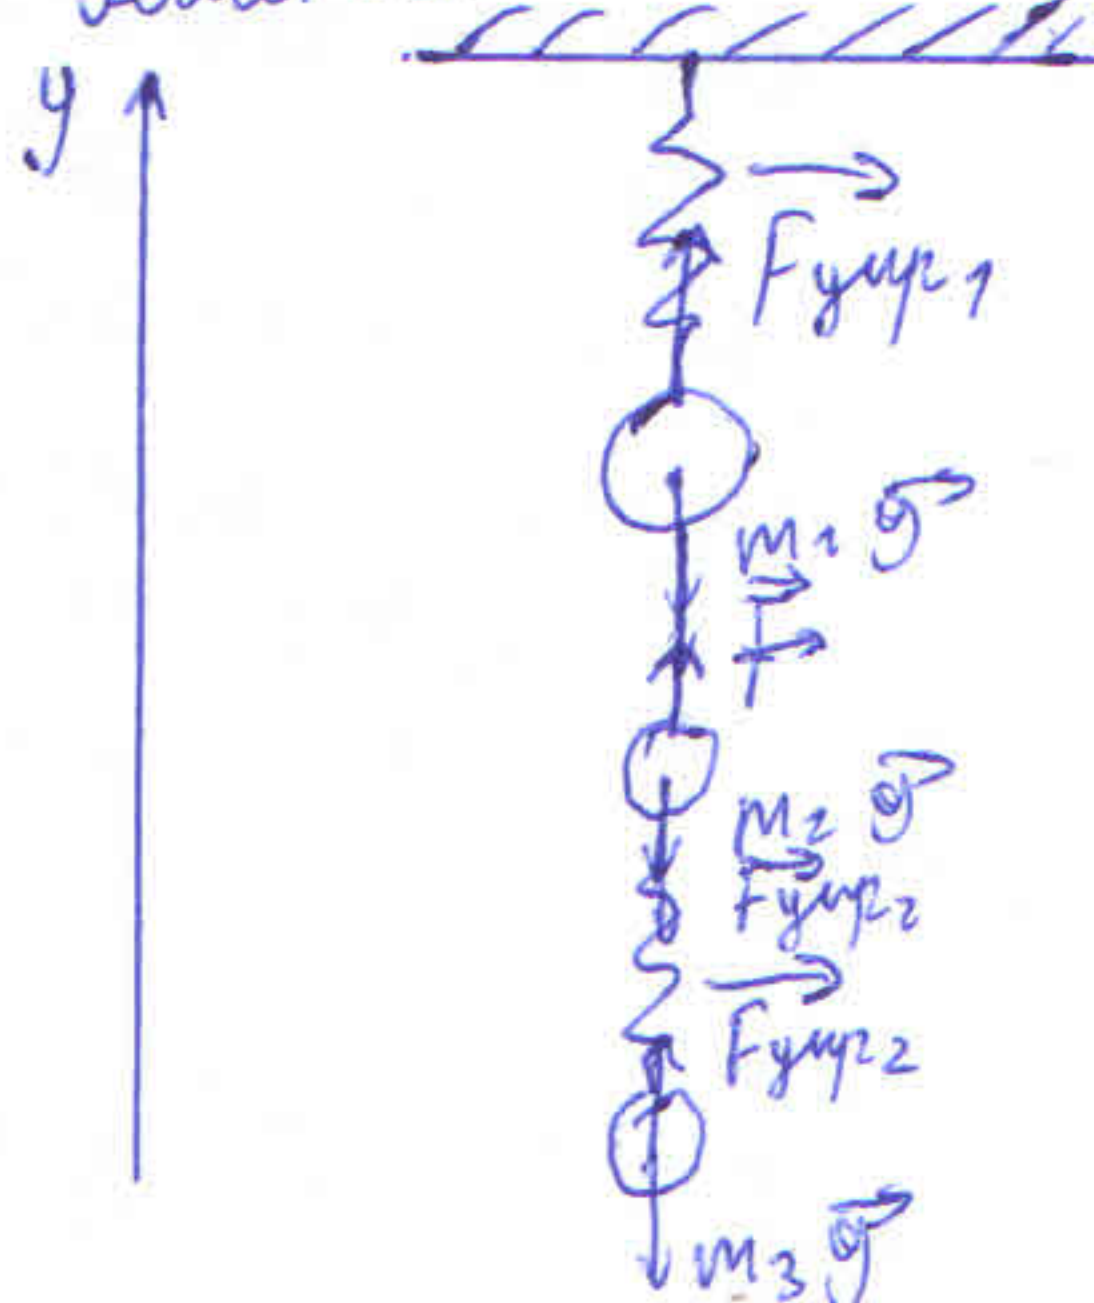 y
Fупр1
m1 g
T
m2 g
Fупр2
Fупр2
m3 g